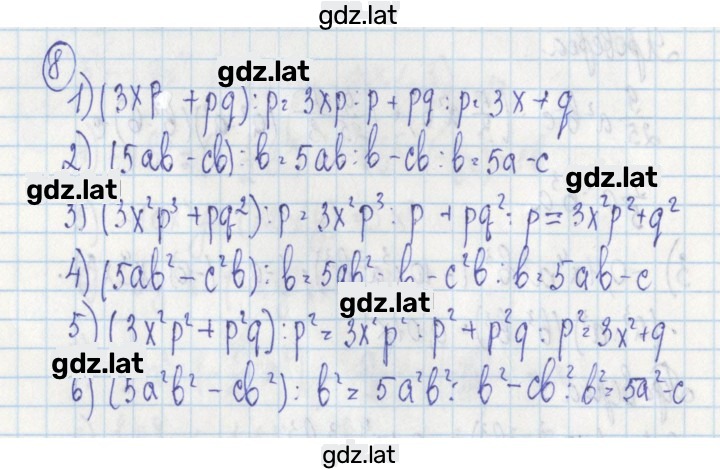 gdz.lat
8
gdz.lat
1) (3xp + pq) : p = 3xp : p + pq : p = 3x + q
2) (5ab - cb) : b = 5ab : b - cb : b = 5a - c
gdz.lat
gdz.lat
3) (3x²p³ + pq²) : p = 3x²p³ : p + pq² : p = 3x²p² + q²
4) (5ab² - c²b) : b = 5ab² : b - c²b : b = 5ab - c
gdz.lat
5) (3x²p² + p²q) : p² = 3x²p² : p² + p²q : p² = 3x² + q
gdz.lat
6) (5a²b² - cb²) : b² = 5a²b² : b² - cb² : b² = 5a² - c
gdz.lat